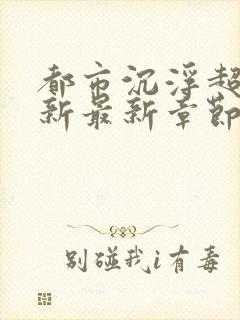 都市沉浮超
新最新章节
别碰我i有毒